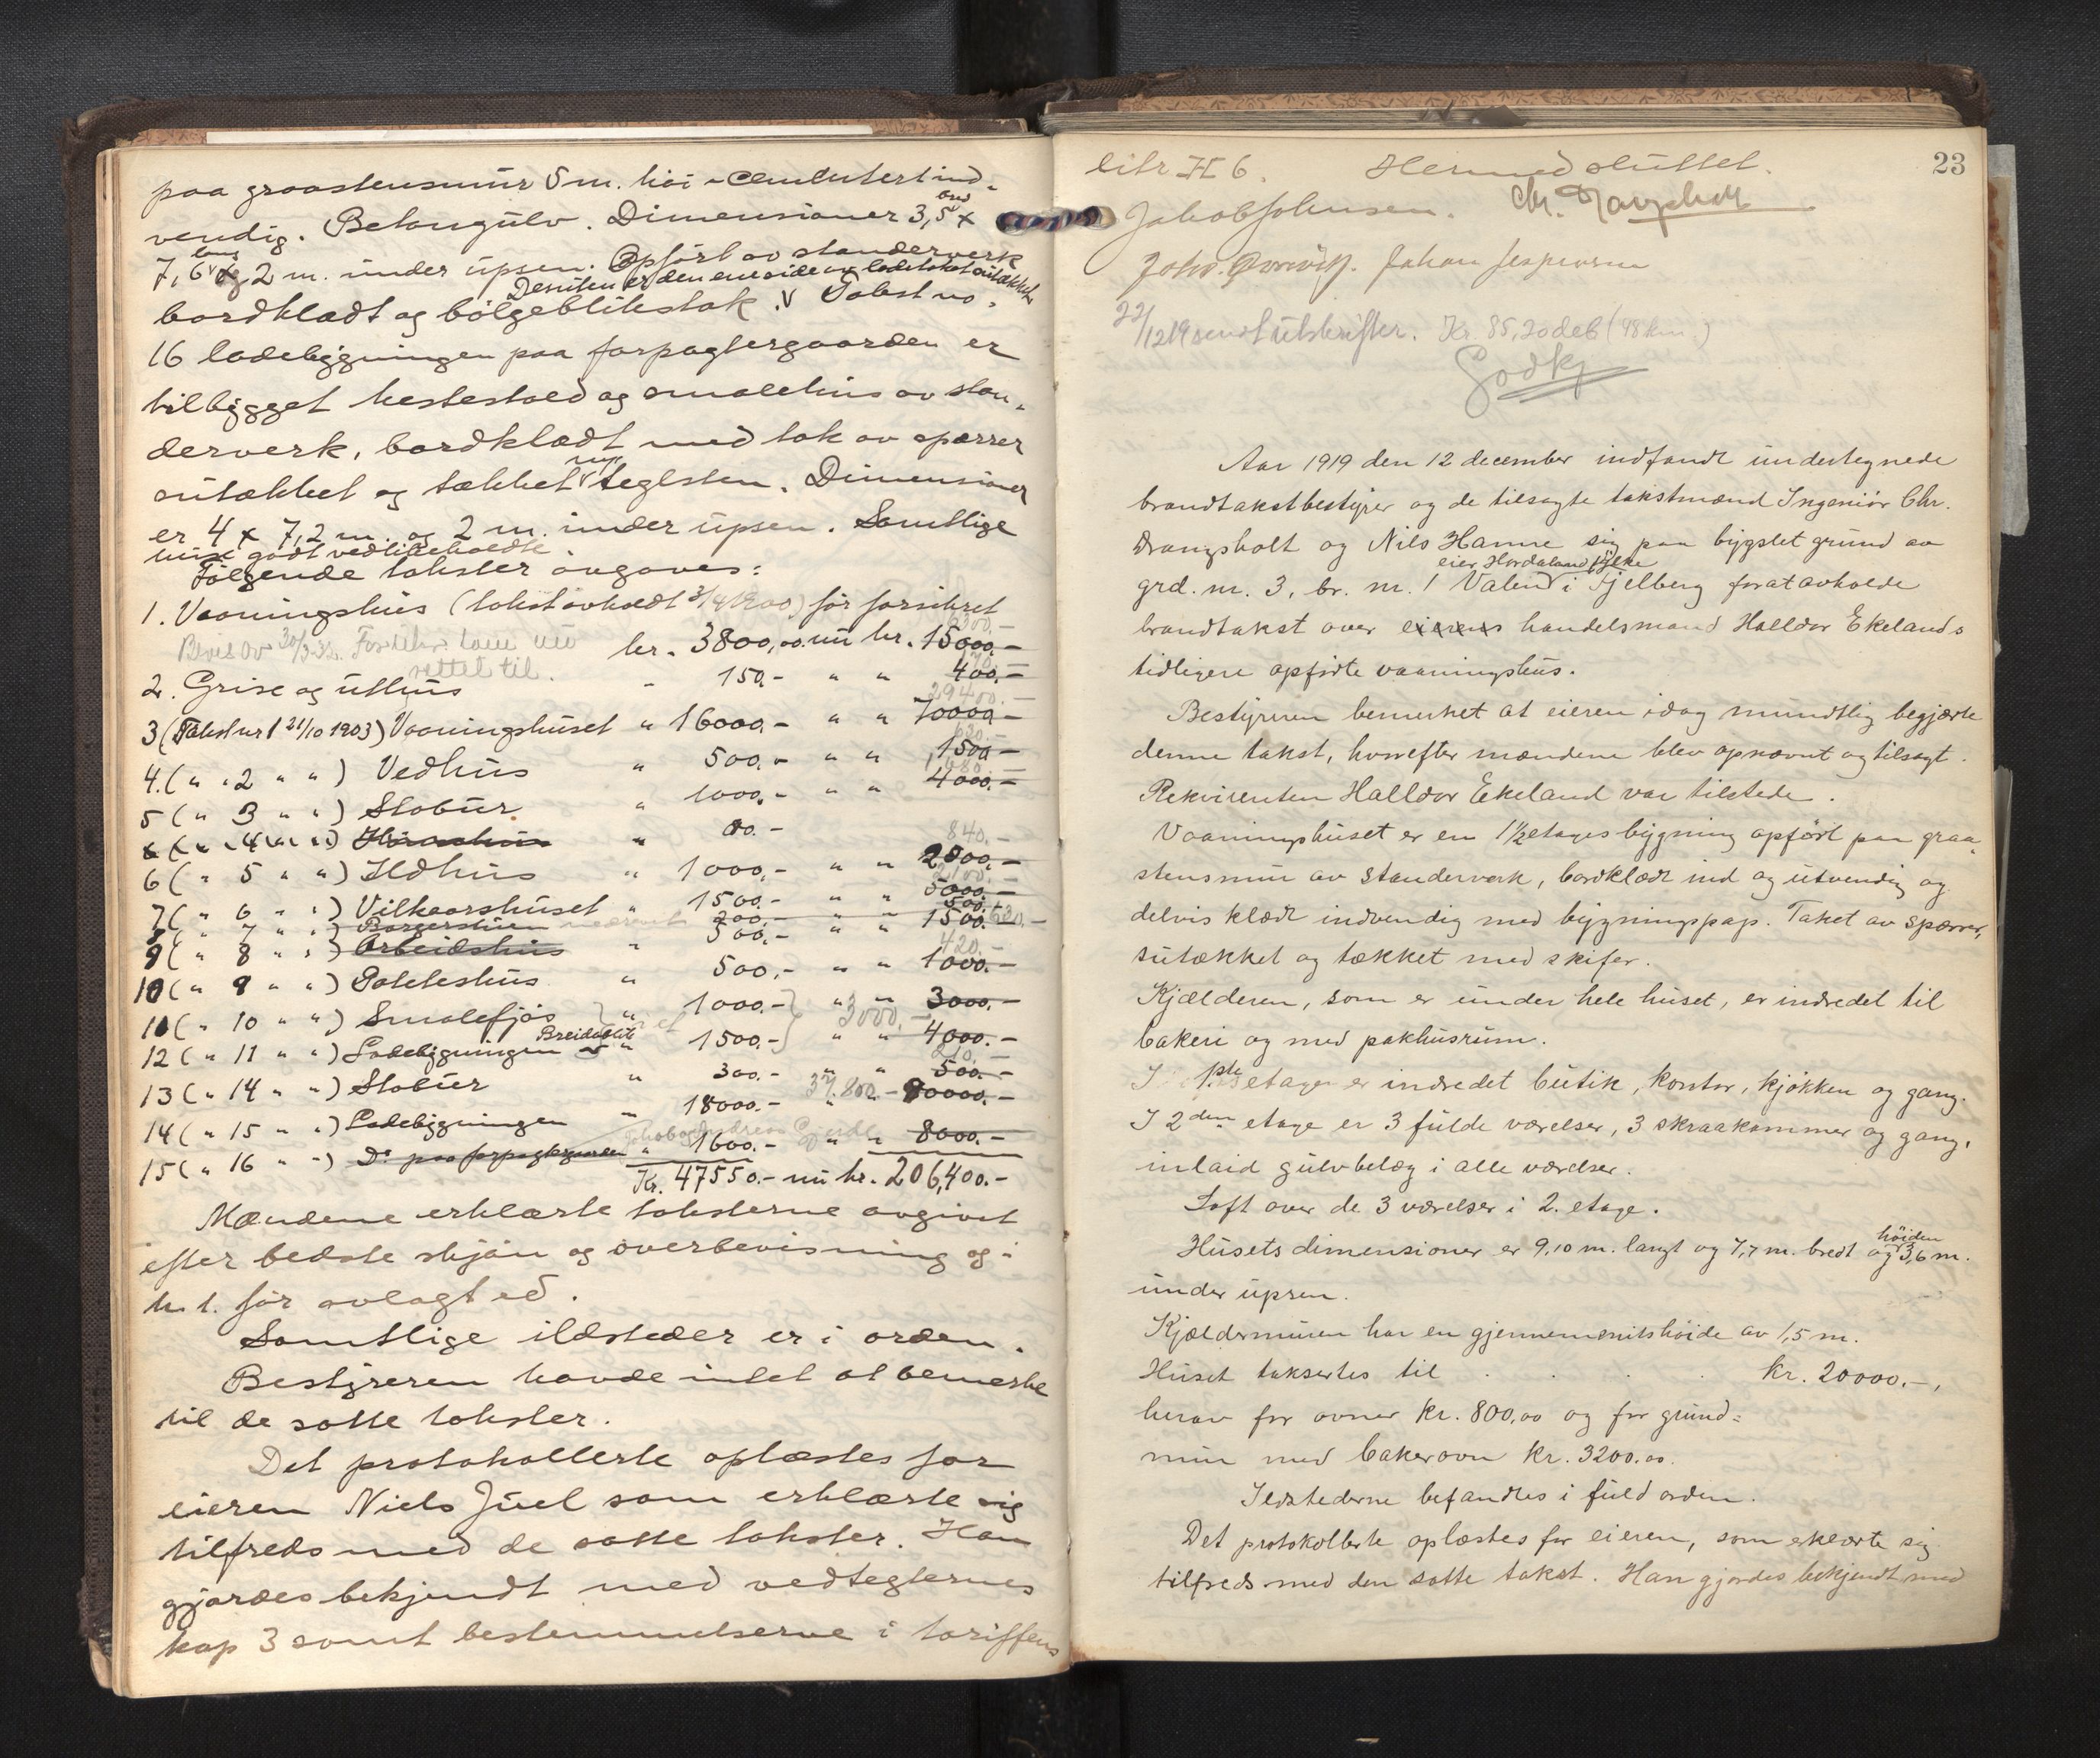 paa graastensmur 5 m. høi - cementert ind-
vendig. Betongulv. Dimensioner 3,5 bred x
7,6 lang og 2 m. under upsen. Opført av standerverk
Desuten er den ene side av ladetaket sutækket
bordklædt og bølgebliktak. V Takst no.
16 ladebygningen paa forpagtergaarden er
tilbygget hestestald og smalehus av stan-
derverk, bordklædt med tak av spærrer
sutækket og tækket V med teglsten. Dimensioner
er 4 x 7,2 m. og 2 m. under upsen. Samtlige
huse godt vedlikeholdte.
Følgende takster avgaves:
1. Vaaningshus (takst avholdt 3/4 1900) før forsikret
6300.-
kr. 3800,00 nu kr. 15000.-
Bevis av 30/3-32. Forsikr.
rettet til.
2. Grise og uthus " 150.- " " 400.-
29400.-
3 (Takst nr 1 21/10 1903) Vaaningshuset " 16000.- " " 70000.-
4. ( " " 2 " " ) Vedhus " 500.- " " 1500.-
5 ( " 3 " " ) Stabur " 1000.- " " 4000.-
6 ( " " 4 " " ) " 80.-
840.-
6 ( " 5 " " ) Ildhus " 1000.- " " 2000.-
7 ( " 6 " " ) Vilkaarshuset " 1500.- " " 5000.-
8 " 7 " " ) Borgerstuen 200.- " " 500.-
9 ( " 8 " " ) Arbeidshus " 500.- " " 1500.- 630.-
420.-
10 ( " 9 " " ) Potteshus " 500.- " " 1000.-
11 ( " 10 " " ) Smalefjøs " 1000.- " " 3000.-
3000.-
12 ( " 11 " " ) Ladebygningen Breidablik " 1500.- " " 4000.-
210.-
13 ( " 14 " " ) Stabur " 300.- " " 500.-
14 ( " 15 " " ) Ladebygningen " 18000.- 37.800.- " 90000.-
15 ( " 16 " " ) Do paa forpagtergaarden " 1600.- " " 8000.-
Kr. 47550.- nu kr. 206,400.-
Mændene erklærte taksterne avgivet
efter bedste skjøn og overbevisning og i
h. t. før avlagt ed.
Samtlige ildsteder er i orden.
Bestyreren havde intet at bemerke
til de satte takster.
Det protokollerte oplæstes for
eieren Niels Juel som erklærte sig
tilfreds med de satte takster. Han
gjordes bekjendt med vedtegternes
kap 3 samt bestemmelserne i tariffens
23
litr H 6. Hermed sluttet.
Jakob Johnsen. Chr. Drangsholt
Johan Jespersen
22/12 19 sendt utskrifter. Kr. 85,20 deb (48 km.)
Godkj
Aar 1919 den 12 december indfandt undertegnede
brandtakstbestyrer og de tilsagte takstmænd Ingeniør Chr.
Drangsholt og Nils Hamre sig paa bygslet grund av
eier Hordaland fylke
grd. nr. 3, br. nr. 1 Valen i Fjelberg forat avholde
brandtakst over eierens handelsmand Halldor Ekelands
tidligere opførte vaaningshus.
Bestyreren bemerket at eieren idag mundtlig begjærte
denne takst, hvorefter mændene blev opnævnt og tilsagt.
Rekvirenten Halldor Ekeland var tilstede.
Vaaningshuset er en 1 1/2 etages bygning opført paa graa-
stensmur av standerverk, bordklædt ind og utvendig og
delvis klædt indvendig med bygningspap. Taket av spærrer,
sutækket og tækket med skifer.
Kjælderen, som er under hele huset, er indredet til
bakeri og med pakhusrum.
I 1ste etage er indredet butik, kontor, kjøkken og gang.
I 2den etage er 3 fulde værelser, 3 skraakammer og gang,
inlaid gulvbelæg i alle værelser.
Loft over de 3 værelser i 2. etage.
Husets dimensioner er 9,10 m. langt og 7,7 m. bredt og høiden 3,6 m.
under upsen.
Kjældermuren har en gjennemsnitshøide av 1,5 m.
Huset taksertes til . . . . kr. 20000.-,
herav for ovner kr. 800,00 og for grund-
mur med bakerovn kr. 3200.00.
Ildstederne befandtes i fuld orden.
Det protokollerte oplæstes for eieren, som erklærte sig
tilfreds med den satte takst. Han gjordes bekjendt med